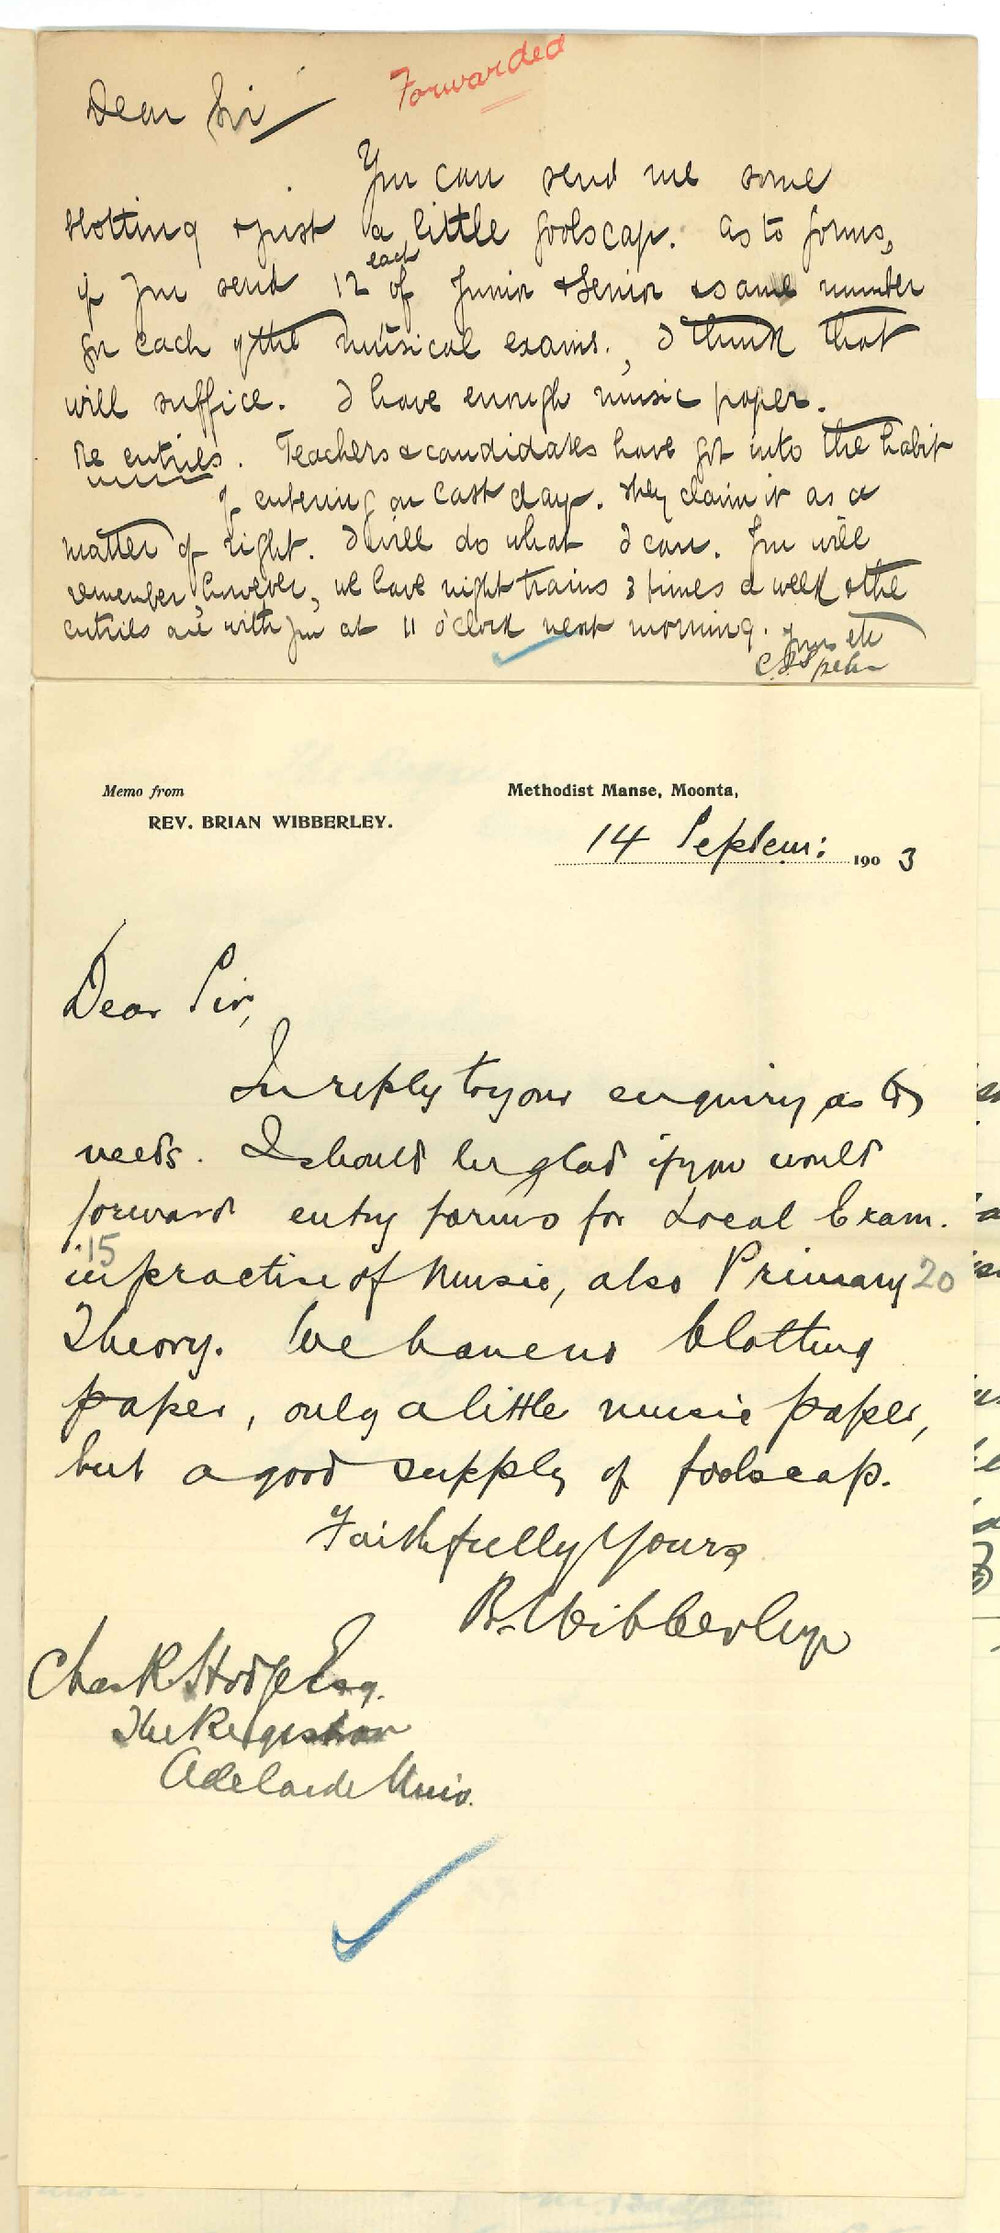 Forwarded
Dear Sir
You can send me some
blotting & just a little foolscap. As to forms,
if you send 12 each of Junior & Senior & same number
for each of the musical exams. I think that
will suffice. I have enough music paper.
Re entries. Teachers & candidates have got into the habit
of entering on last day. They claim it as a
matter of right. I will do what I can. You will
remember, however, we have night trains 3 times a week & the
entries are with you at 11 o'clock next morning. Yours etc
Memo from
REV. BRIAN WIBBERLEY.
Methodist Manse, Moonta,
14 Septem: 1903
Dear Sir,
In reply to your enquiry as to
needs. I should be glad if you would
forward entry forms for Local Exam.
15
in practice of Music, also Primary 20
Theory. We have no blotting
paper, only a little music paper,
but a good supply of foolscap.
Faithfully Yours
B. Wibberley
Chas R Hodge Esq.
The Registrar
Adelaide Univ.